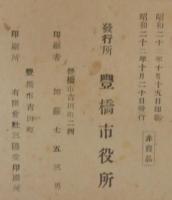 昭和二十二年十月十五日印刷
昭和二十二年十月二十日發行
非賣品
發行所 豐橋市役所
豐橋市吉田町二洲
印刷者 加藤七五三男
豐橋市吉田町
印刷所 有限會社三國堂印刷所